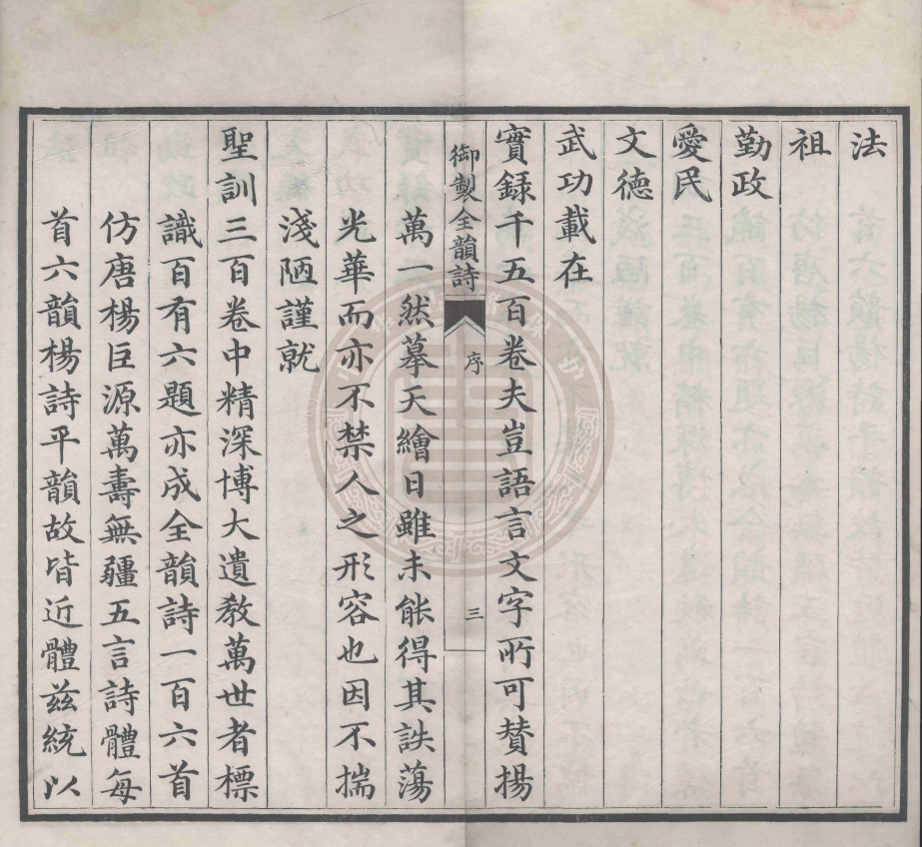 法
祖
勤政
愛民
文德
武功載在
實録千五百卷夫豈語言文字所可贊揚
御製全韻詩 序 三
萬一然摹天繪日雖未能得其詄蕩
光華而亦不禁人之形容也因不揣
淺陋謹就
聖訓三百卷中精深博大遺教萬世者標
識百有六題亦成全韻詩一百六首
仿唐楊巨源萬壽無疆五言詩體每
首六韻楊詩平韻故皆近體茲統以